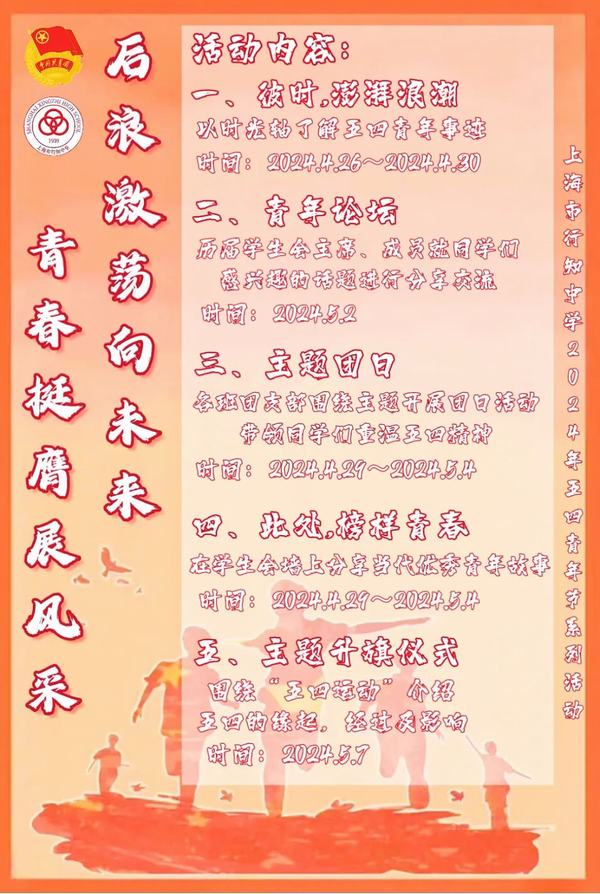 中国共青团
SHANGHAI XINGZHI HIGH SCHOOL
1939
上海市行知中学
后浪激荡向未来
青春挺膺展风采
活动内容：
一、彼时,澎湃浪潮
以时光轴了解五四青年事迹
时间：2024.4.26～2024.4.30
二、青年论坛
历届学生会主席、成员就同学们
感兴趣的话题进行分享交流
时间：2024.5.2
三、主题团日
各班团支部围绕主题开展团日活动
带领同学们重温五四精神
时间：2024.4.29～2024.5.4
四、此处,榜样青春
在学生会墙上分享当代优秀青年故事
时间：2024.4.29～2024.5.4
五、主题升旗仪式
围绕“五四运动”介绍
五四的缘起，经过及影响
时间：2024.5.7
上海市行知中学2024年五四青年节系列活动